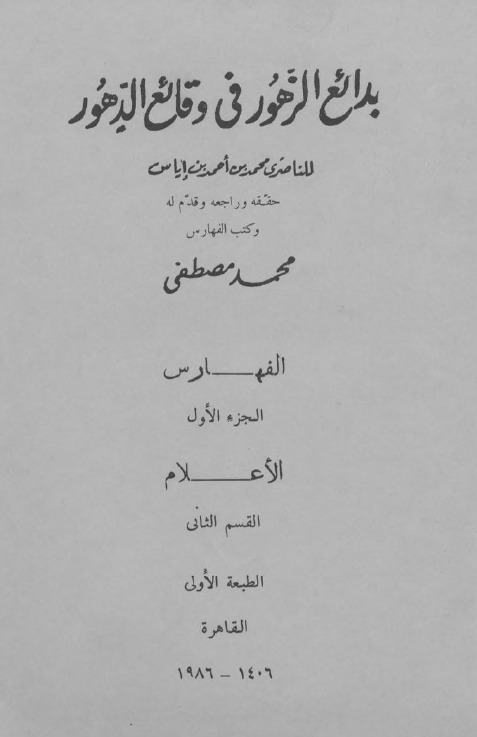 بدائع الزّهُور فى وقائع الدّهُور
للناصرى محمد بن أحمد بن إياس
حققه وراجعه وقدّم له
وكتب الفهارس
محمد مصطفى
الفهـــارس
الجزء الأول
الأعـــــلام
القسم الثانى
الطبعة الأولى
القاهرة
١٤٠٦ – ١٩٨٦